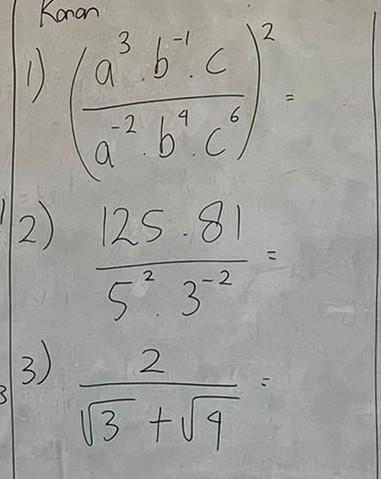 Kanan
1) (a³ . b⁻¹ . c / a⁻² . b⁴ . c⁶)² =
2) 125 . 81 / 5² . 3⁻² =
3) 2 / √3 + √4 =